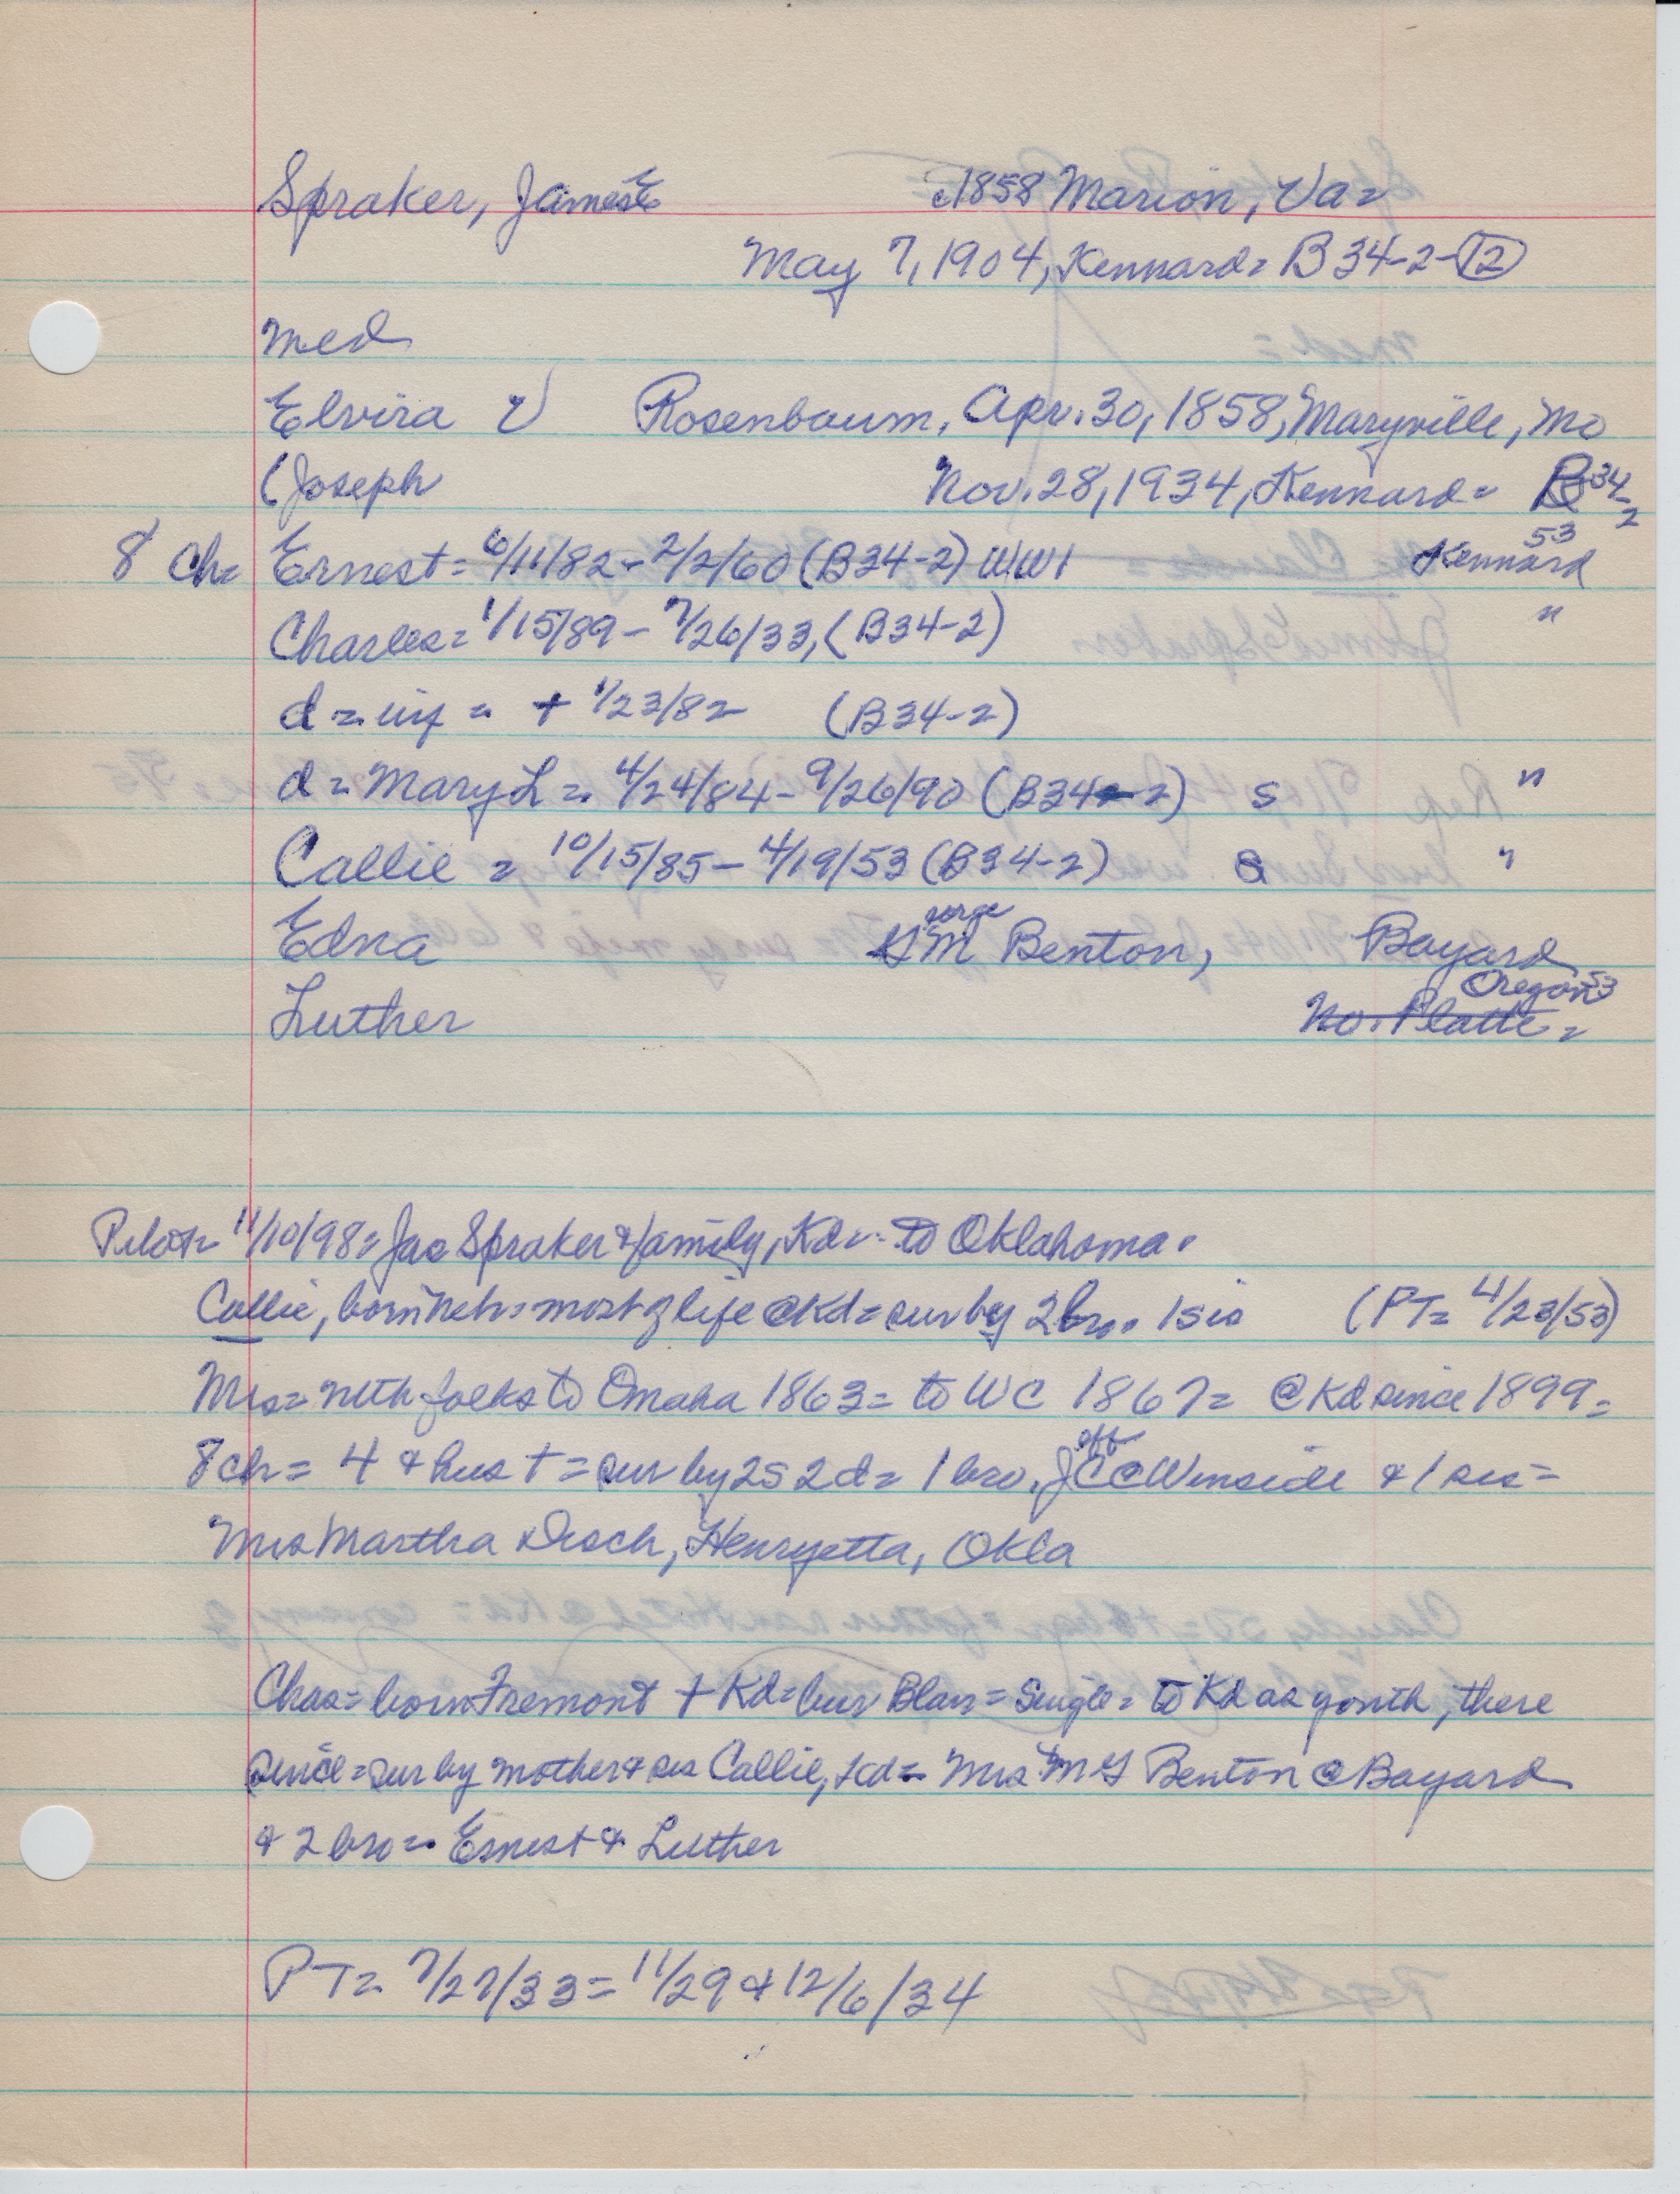 Spraker, James E c1858 Marion, Va=
May 7, 1904, Kennard= B34-2-12
med
Elvira V Rosenbaum, Apr. 30, 1858, Maryville, Mo
(Joseph Nov. 28, 1934, Kennard= B34-2
8 ch= Ernest= 6/11/82-2/2/60 (B34-2) WW1 Kennard 53
Charles= 1/15/89-7/26/33, (B34-2) "
d= inf = + 1/23/82 (B34-2)
d= Mary L= 4/24/84-9/26/90 (B34-2) S "
Callie = 10/15/85-4/19/53 (B34-2) S "
Edna George M Benton, Bayard
Luther No. Platte= Oregon 53
Pilot= 11/10/98= Jas Spraker & family, Kd= to Oklahoma.
Callie, born Neb= most of life @ Kd= sur by 2 bro. 1 sis (PT= 4/23/53)
Mrs= with folks to Omaha 1863= to WC 1867= @ Kd since 1899=
8 ch= 4 & hus += sur by 2s 2d= 1 bro, J C @ Winside & 1 sis=
Mrs Martha Disch, Henryetta, Okla
Chas= born Fremont + Kd= bur Blair= Single= to Kd as youth, there
since= sur by mother & sis Callie, Kd= Mrs M G Benton @ Bayard
& 2 bro= Ernest & Luther
PT= 7/27/33= 11/29 & 12/6/34